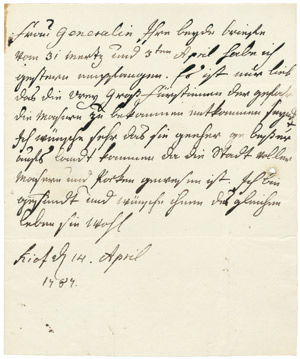 Frau Generalin, Ihre beyde briefe
vom 31 mertz und 3ten April habe ich
gestern empfangen. Es ist mir lieb
das die drey Groß-fürstinnen der gefahr
die Masern zu bekommen entkommen
Ich wünsche sehr das sie
aufs Landt kommen da die Stadt voller
Masern und Pocken gewesen ist. Ich bin
gesundt und wünsche ihnen des gleichen
leben sie wohl
Kiof d 14. April
1787.